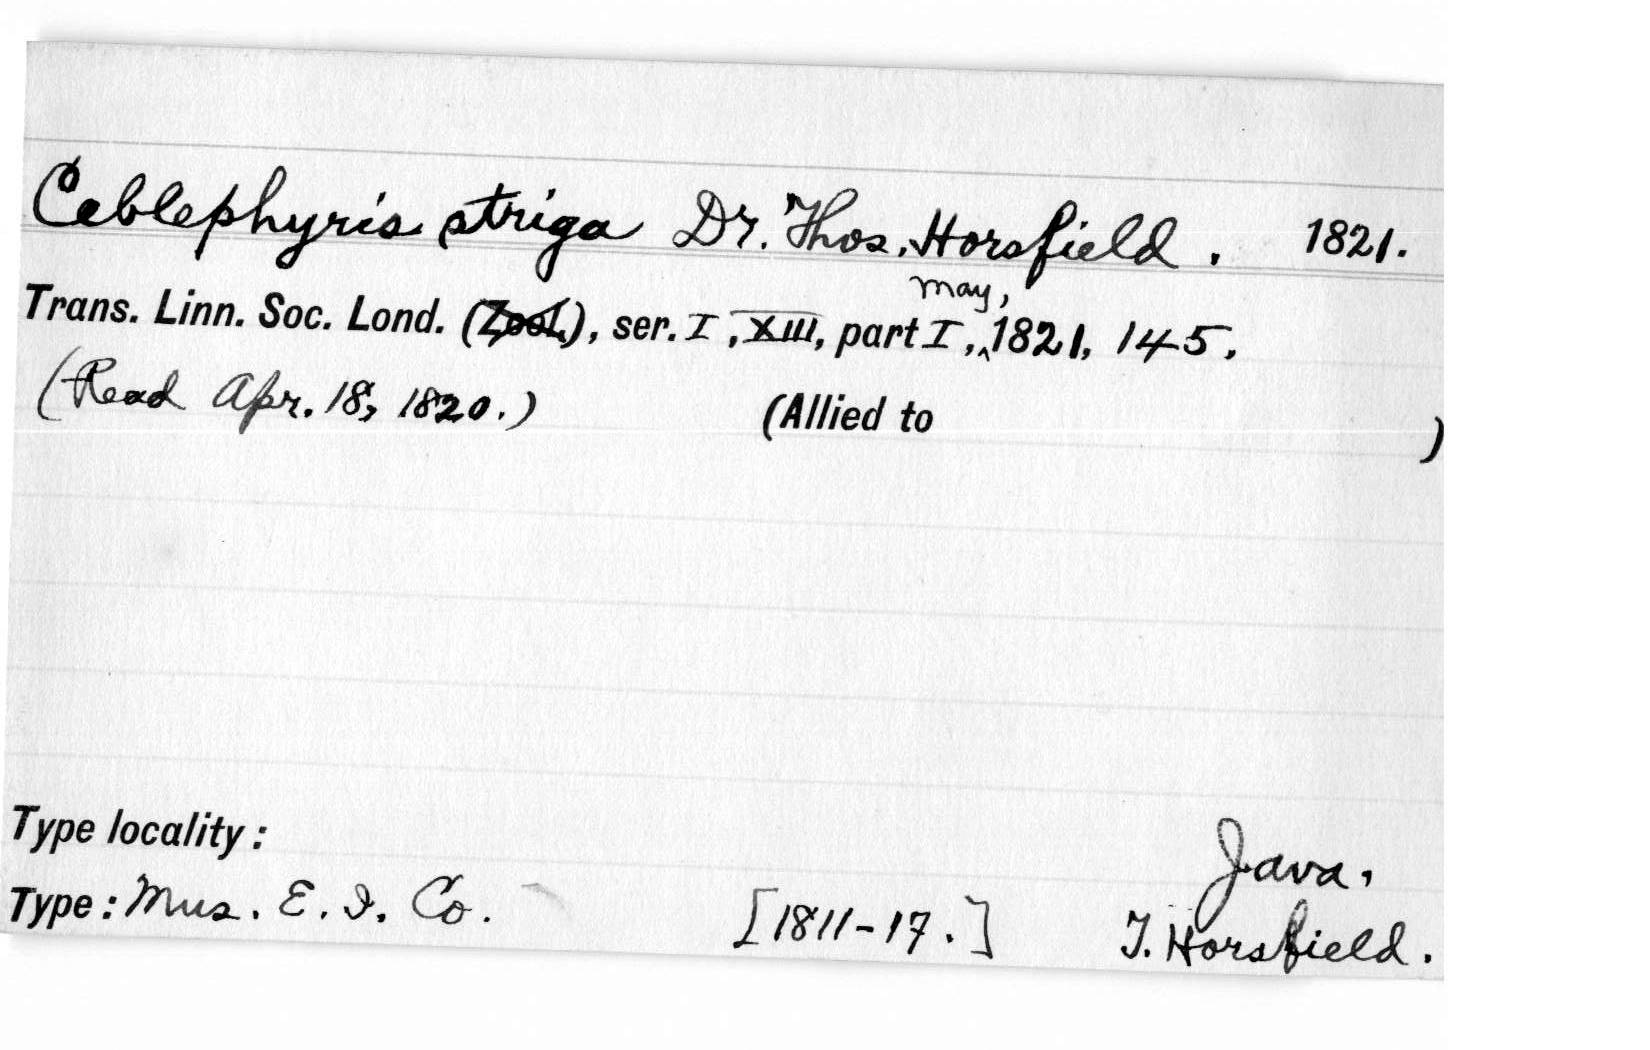 Ceblephyris striga Dr. Thos. Horsfield. 1821.
Trans. Linn. Soc. Lond. (Zool.), ser. I, XIII, part I, May, 1821, 145.
(Read Apr. 18, 1820.) (Allied to )
Type locality: Java.
Type: Mus. E. I. Co. [1811-17.] T. Horsfield.